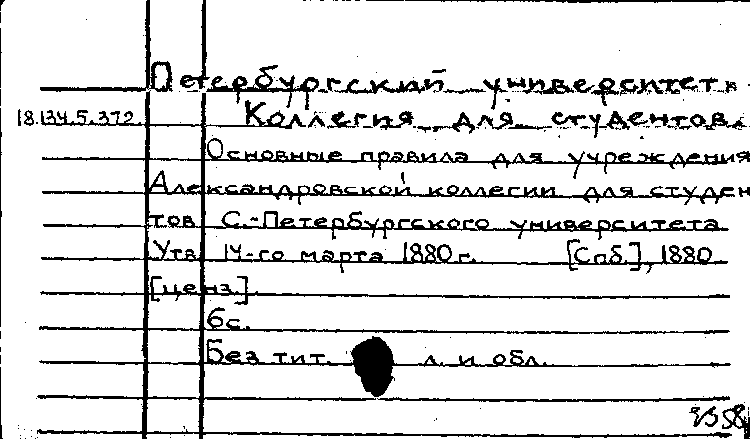 Петербургский университет.
18.134.5.372 Коллегия для студентов.
Основные правила для учреждения
Александровской коллегии для студен
тов С.-Петербургского университета
Утв. 14-го марта 1880 г. [Спб.], 1880
[ценз.].
6с.
Без тит. л. и обл.